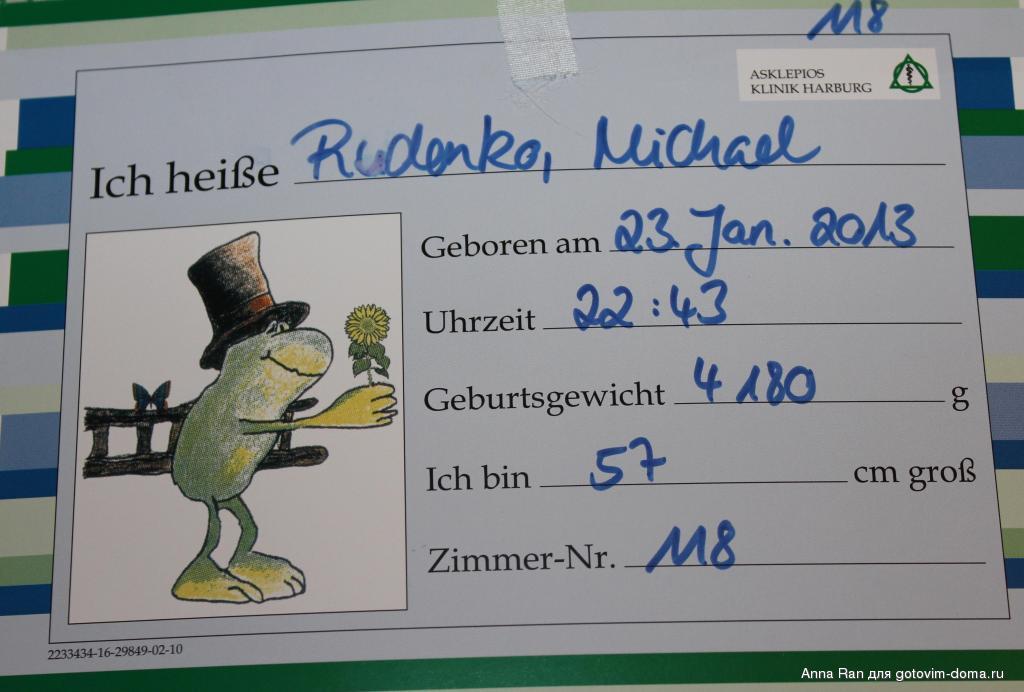 118
ASKLEPIOS
KLINIK HARBURG
Ich heiße Rudenko, Michael
Geboren am 23. Jan. 2013
Uhrzeit 22:43
Geburtsgewicht 4180 g
Ich bin 57 cm groß
Zimmer-Nr. 118
2233434-16-29849-02-10
Anna Ran для gotovim-doma.ru